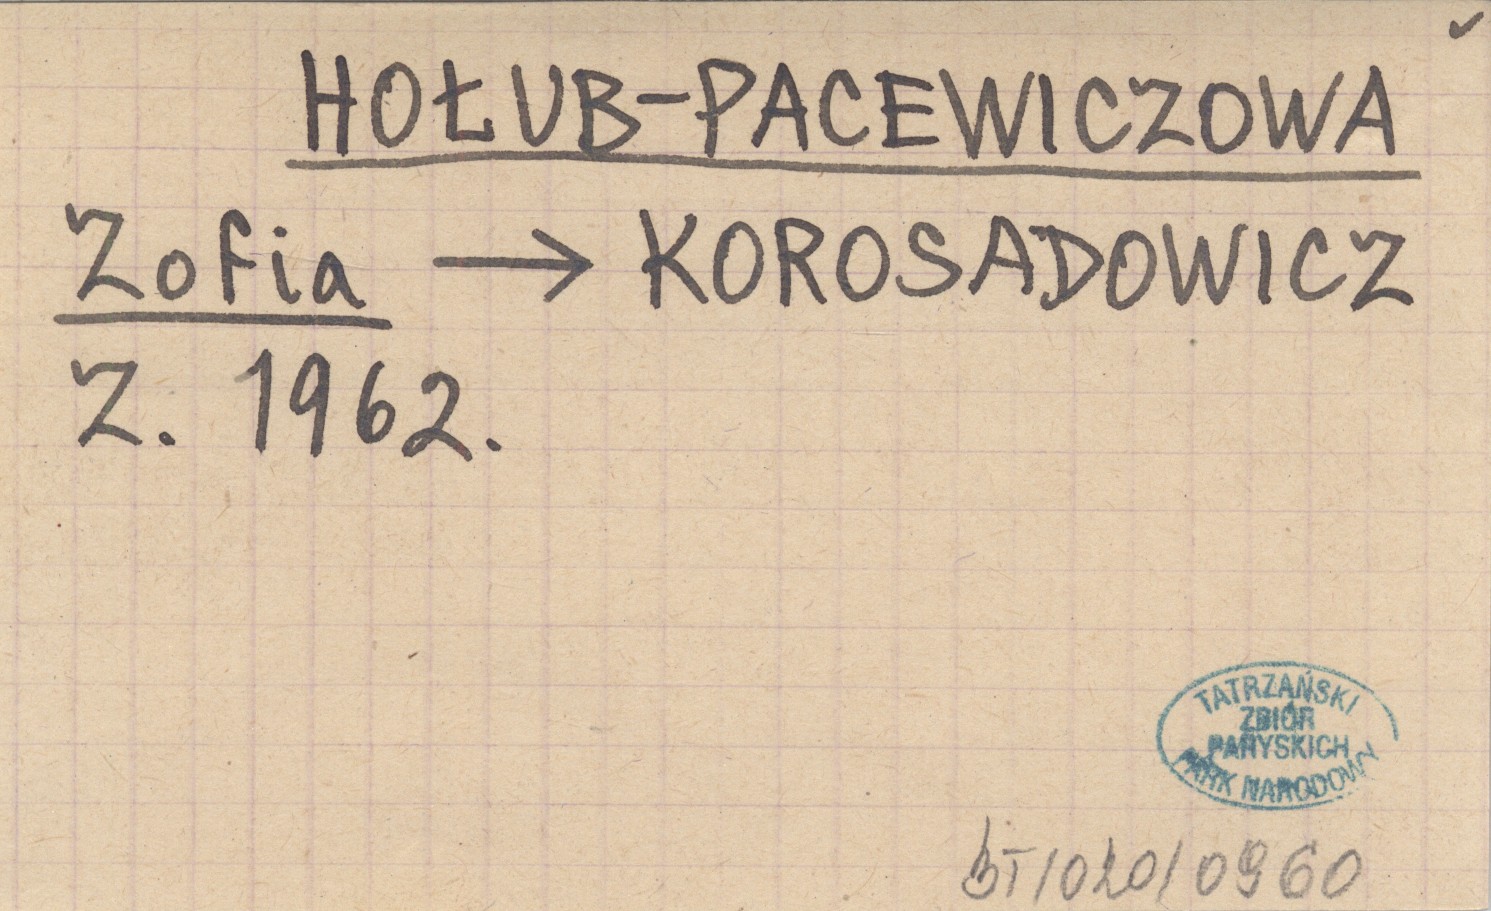 HOŁUB-PACEWICZOWA
Zofia → KOROSADOWICZ
Z. 1962.
TATRZAŃSKI
ZBIÓR
PARYSKICH
PARK NARODOWY
BT/020/0960